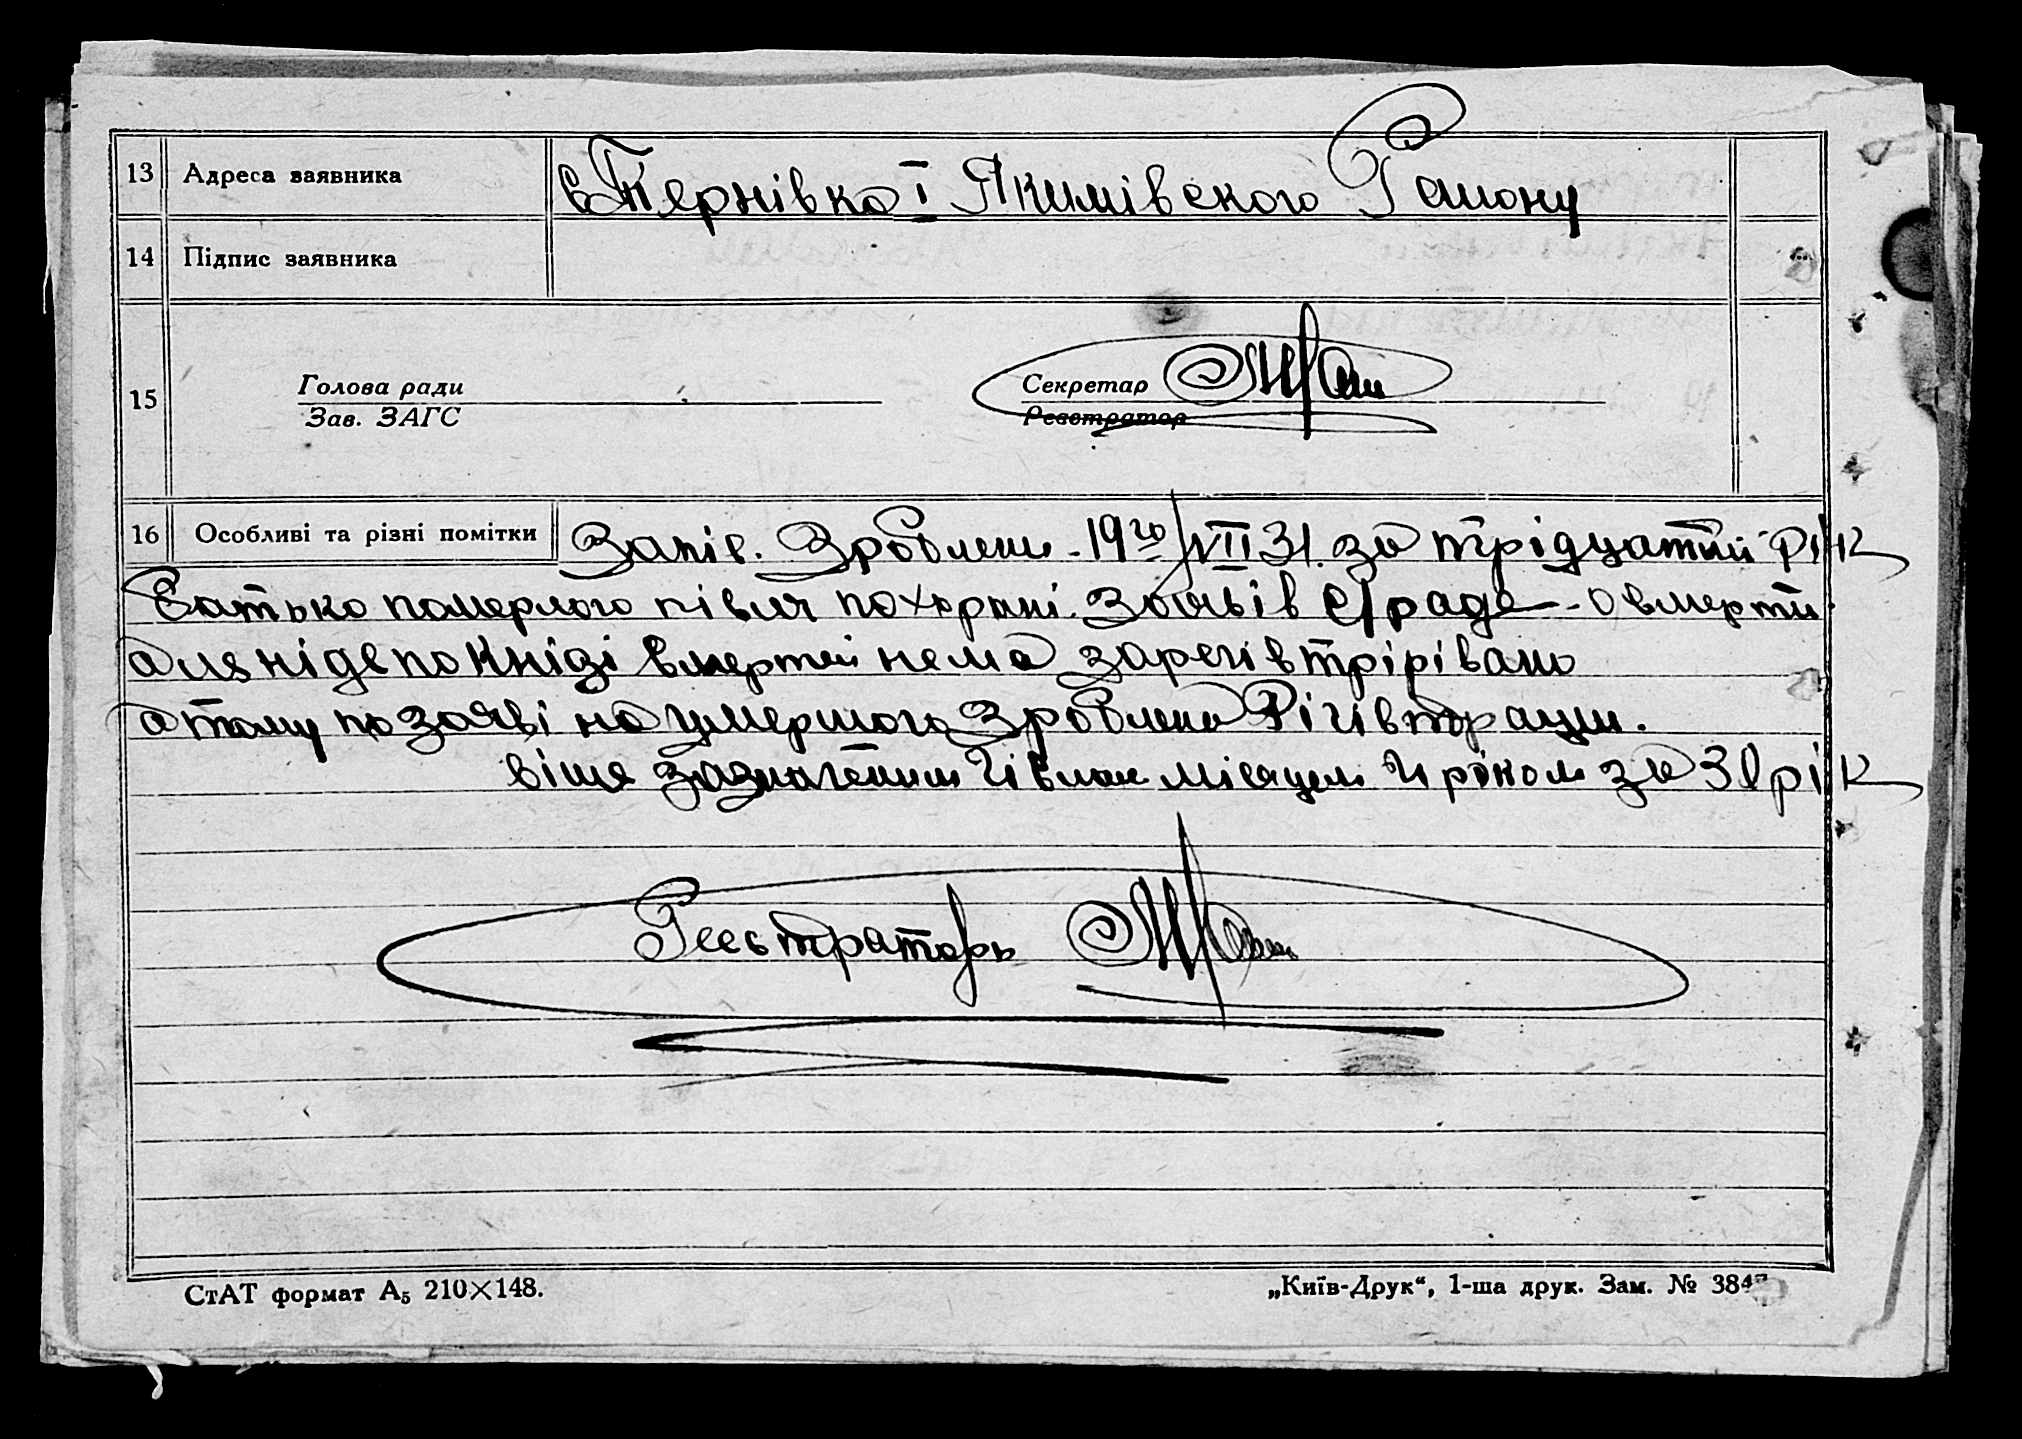 13 Адреса заявника с Тернівка I Якимівского Району
14 Підпис заявника
15 Голова ради Секретар
Зав. ЗАГС Реєстратор
16 Особливі та різні помітки Запис. Зроблено 19го/VII 31. за трідцатий рік
Батько померлого після похорані. Заявів с/раде о смерти
але ніде по Кнізі смертей нема зарегістрірівано
а тому по заяві на умершого Зроблено Рігістрацію.
віше зазначеним чіслом місяцем и роком за 30 рік
Реєстраторь
СтАТ формат А₅ 210×148.
„Київ-Друк“, 1-ша друк. Зам. №